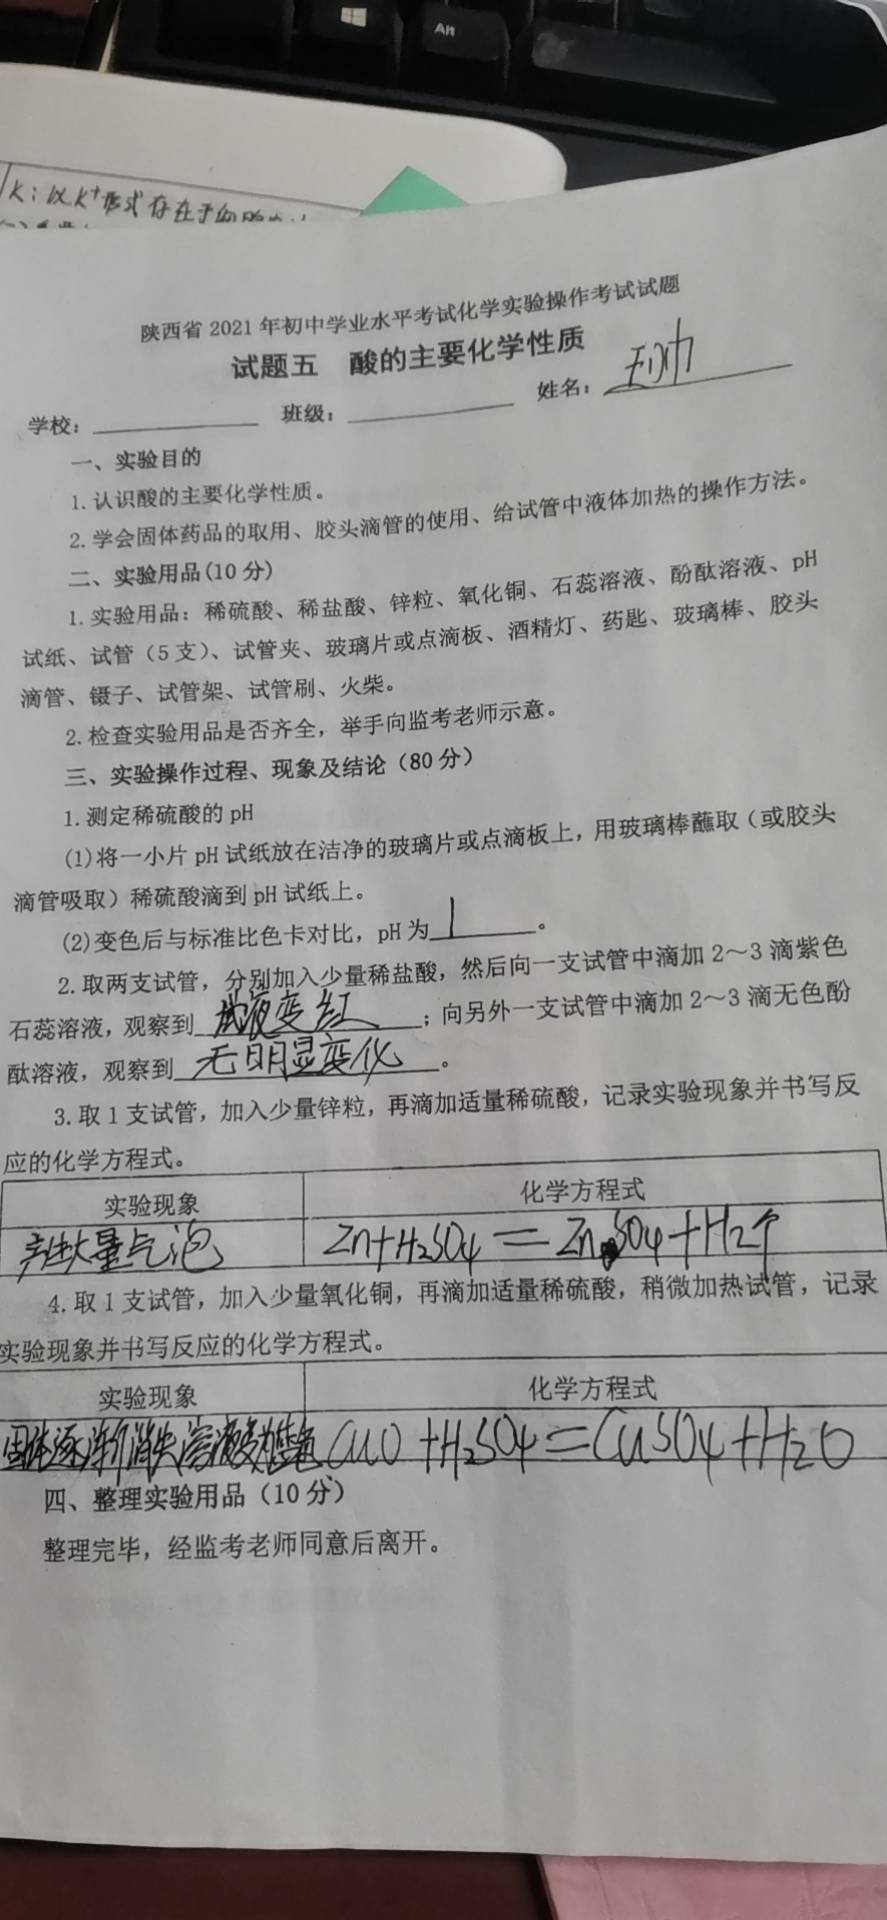 Alt
K：以K⁺形式存在于细胞
陕西省 2021 年初中学业水平考试化学实验操作考试试题
试题五 酸的主要化学性质
学校： 班级： 姓名：
一、实验目的
1.认识酸的主要化学性质。
2.学会固体药品的取用、胶头滴管的使用、给试管中液体加热的操作方法。
二、实验用品(10 分)
1.实验用品：稀硫酸、稀盐酸、锌粒、氧化铜、石蕊溶液、酚酞溶液、pH
试纸、试管（5 支）、试管夹、玻璃片或点滴板、酒精灯、药匙、玻璃棒、胶头
滴管、镊子、试管架、试管刷、火柴。
2.检查实验用品是否齐全，举手向监考老师示意。
三、实验操作过程、现象及结论（80 分）
1.测定稀硫酸的 pH
(1)将一小片 pH 试纸放在洁净的玻璃片或点滴板上，用玻璃棒蘸取（或胶头
滴管吸取）稀硫酸滴到 pH 试纸上。
(2)变色后与标准比色卡对比，pH 为 1 。
2.取两支试管，分别加入少量稀盐酸，然后向一支试管中滴加 2～3 滴紫色
石蕊溶液，观察到 试液变红 ；向另外一支试管中滴加 2～3 滴无色酚
酞溶液，观察到 无明显变化 。
3.取 1 支试管，加入少量锌粒，再滴加适量稀硫酸，记录实验现象并书写反
应的化学方程式。
实验现象 化学方程式
产生大量气泡 Zn+H₂SO₄=ZnSO₄+H₂↑
4.取 1 支试管，加入少量氧化铜，再滴加适量稀硫酸，稍微加热试管，记录
实验现象并书写反应的化学方程式。
实验现象 化学方程式
固体逐渐消失溶液变蓝色 CuO+H₂SO₄=CuSO₄+H₂O
四、整理实验用品（10 分）
整理完毕，经监考老师同意后离开。